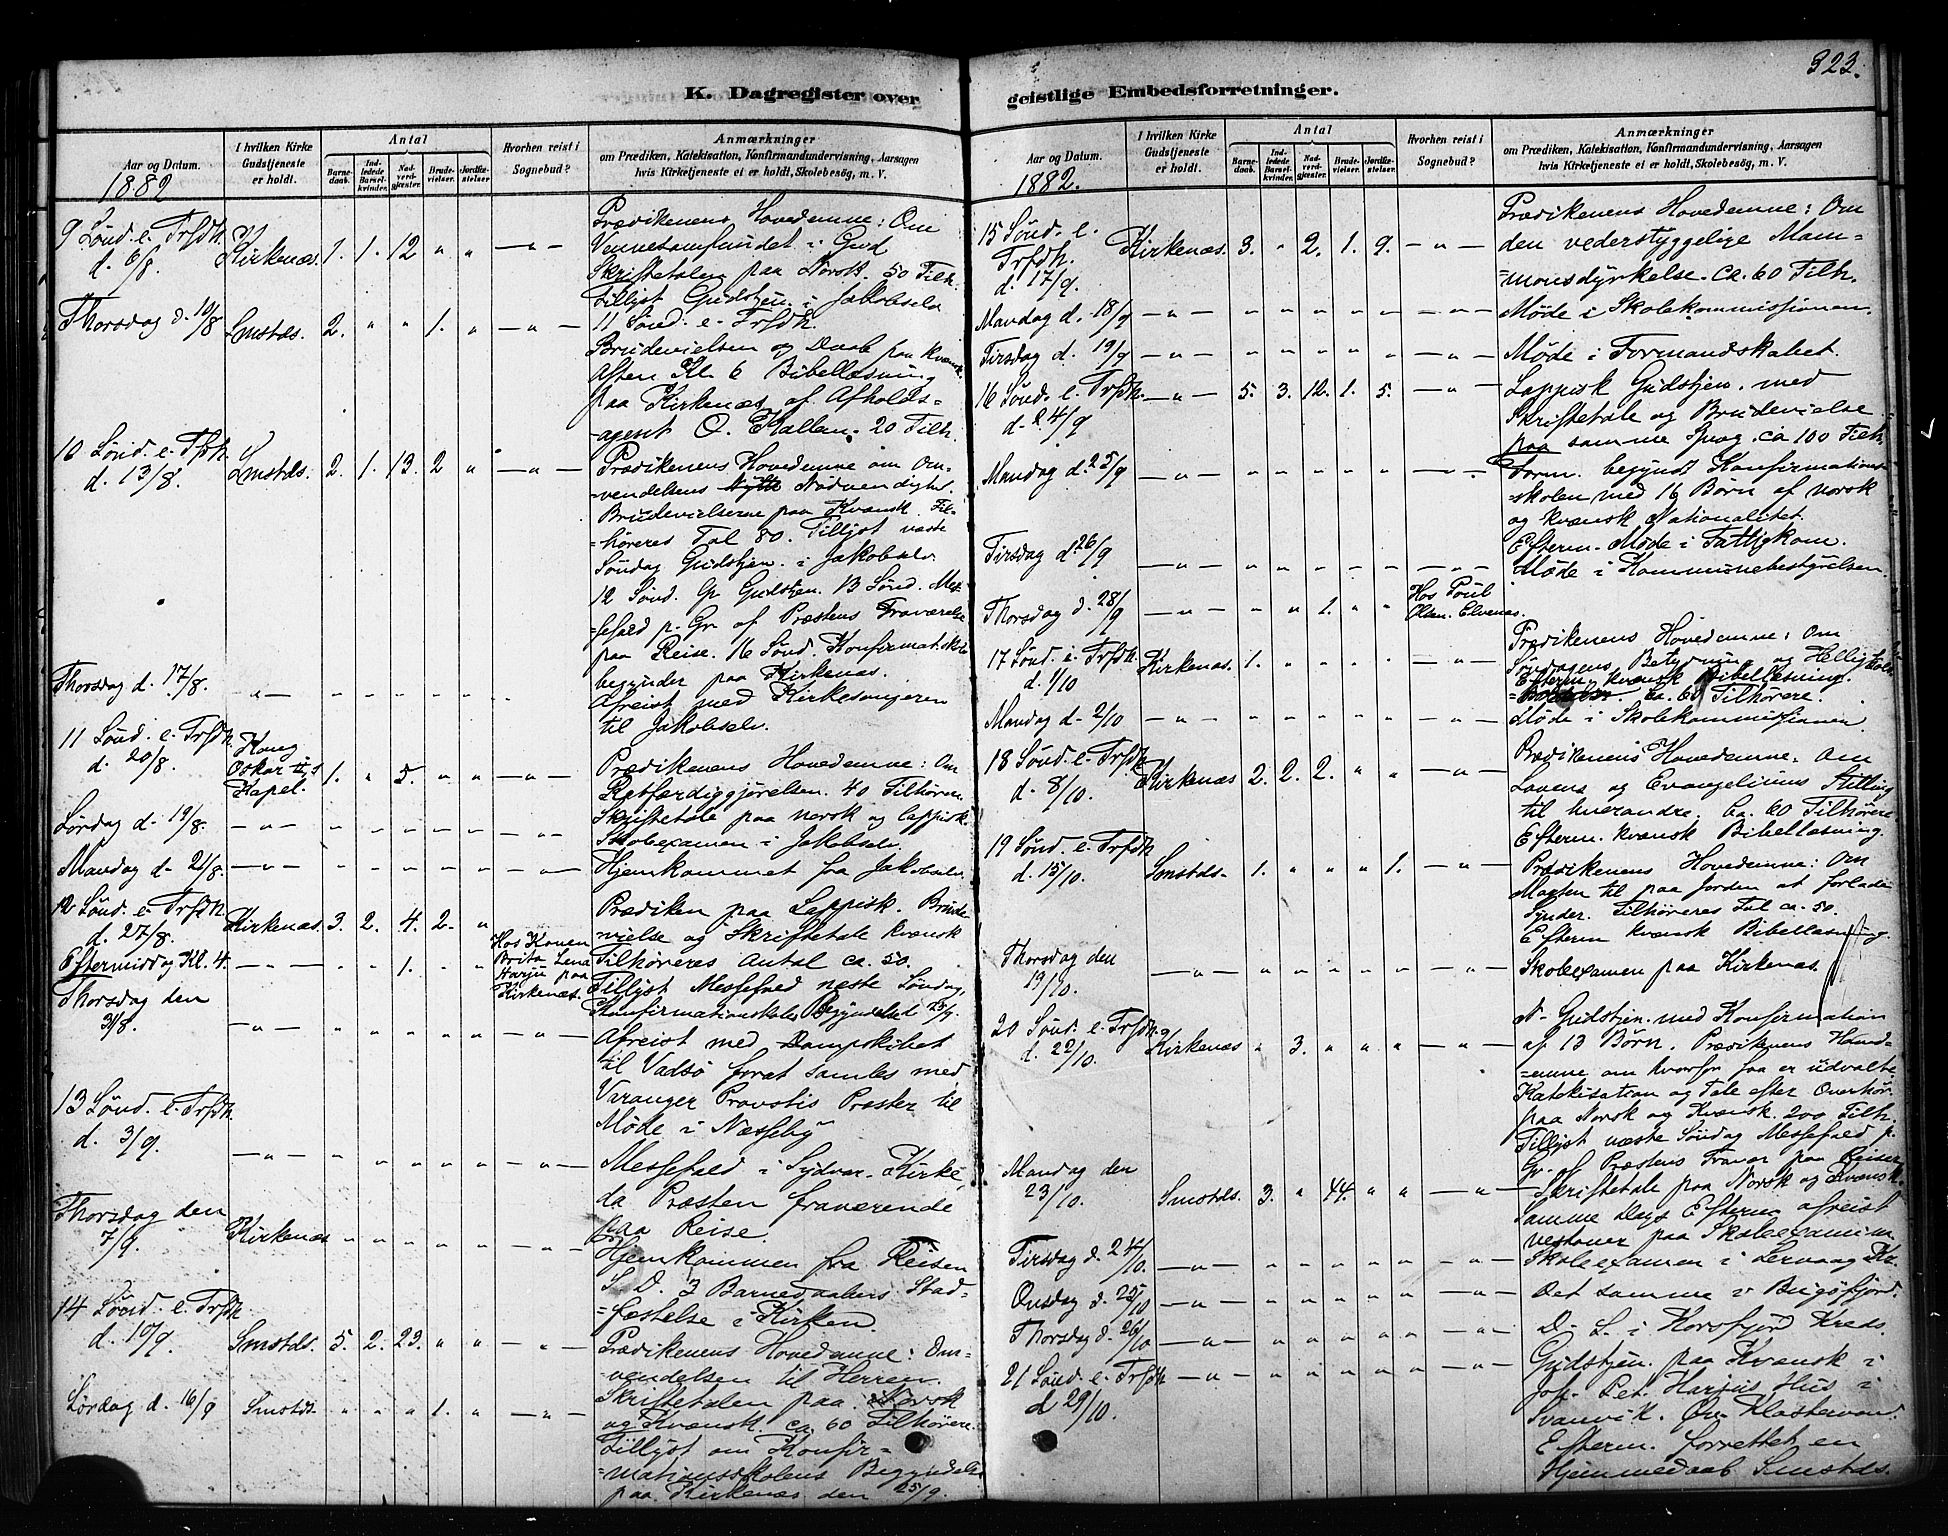 323.
K. Dagregister over
geistlige Embedsforretninger.
Aar og Datum.
1882
I hvilken Kirke
Gudstjeneste
er holdt.
Antal
Barne-
daab.
Ind-
ledede
Barsel-
kvinder.
Nad-
verd-
gjæster.
Brude-
vielser.
Jordfæ-
stelser.
Hvorhen reist i
Sognebud?
Anmærkninger
om Prædiken, Katekisation, Konfirmandundervisning, Aarsagen
hvis Kirketjeneste ei er holdt, Skolebesøg, m. V.
9 Sønd. e. Trfdh.
d. 6/8.
Kirkenæs. 1. 1. 12 " " — " —
Prædikenens Hovedemne: Om
Vennesamfundet i Gud
Skriftetalen paa Norsk. 50 Tilh.
Tillyst Gudstjen. i Jakobselv
11 Sønd. e. Trfdh.
Thorsdag d. 10/8 Smstds. 2. " " 1. " — " —
Brudevielsen og Daab paa kvænsk.
Aften Kl. 6 Bibellæsning
paa Kirkenæs af Afholds-
agent O. Kallen. 20 Tilh.
10 Sønd. e. Trfdh.
d. 13/8. Smstds. 2. 1. 13. 2 " — " —
Prædikenens Hovedemne om Om-
=vendelsens Nødvendighed.
Brudevielserne paa Kvænsk. Til-
=høreres Tal 80. Tillyst næste
Søndag Gudstjen. i Jakobselv
12 Sønd. Gr Gudstjen. 13 Sønd. Mes-
=sefald p. Gr. af Præstens Fraværelse
paa Reise. 16 Sønd. Konfirmat.skole
begynder paa Kirkenæs.
Thorsdag d. 17/8. " —
Afreist med Kirkesangeren
til Jakobselv.
11 Sønd. e. Trfdh.
d. 20/8.
Kong
Oskar II's
Kapel. 1. " 5. " " — " —
Prædikenens Hovedemne: Om
Retfærdiggjørelsen. 40 Tilhørere.
Skriftetale paa norsk og lappisk.
Lørdag d. 19/8. — " —
Skoleexamen i Jakobselv.
Mandag d. 21/8. — " —
Hjemkommet fra Jakobselv.
12 Sønd. e. Trfdh.
d. 27/8. Kirkenæs. 3. 2. 4. 2. "
Prædiken paa Lappisk. Brude-
vielse og Skriftetale kvænsk
Eftermiddag Kl. 4. — " — 1. "
Hos Konen
Brita Lena
Harju paa
Kirkenæs.
Tilhøreres Antal ca. 50.
Tillyst Messefald næste Søndag,
Konfirmationsskoles Begyndelse d 25/9.
Thorsdag den
31/8. — " —
Afreist med Dampskibet
til Vadsø forat samles med
Varanger Provstis Præster til
Møde i Næsseby
13 Sønd. e. Trfdh.
d. 3/9. — " —
Messefald i Sydvar. Kirke,
da Præsten fraværende
paa Reise.
Thorsdag den
7/9. Kirkenæs " " " " " — " —
Hjemkommen fra Reisen
S. D. 3 Barnedaabers Stad-
=fæstelse i Kirken.
14 Sønd. e. Trfdh
d. 10/9. Smstds. 5. 2. 23. " " — " —
Prædikenens Hovedemne: Om-
=vendelsen til Herren.
Skriftetalen paa Norsk
og Kvænsk. ca. 60 Tilhørere.
Lørdag d. 16/9 Smstds. " " " 1. " — " —
Tillyst om Konfir-
=mationsskolens Begyndelse
paa Kirkenæs den 25/9.
Aar og Datum.
1882.
I hvilken Kirke
Gudstjeneste
er holdt.
Antal
Barne-
daab.
Ind-
ledede
Barsel-
kvinder.
Nad-
verd-
gjæster.
Brude-
vielser.
Jordfæ-
stelser.
Hvorhen reist i
Sognebud?
Anmærkninger
om Prædiken, Katekisation, Konfirmandundervisning, Aarsagen
hvis Kirketjeneste ei er holdt, Skolebesøg, m. V.
15 Sønd. e.
Trfdh.
d. 17/9. Kirkenæs. 3. " 2. 1. 9. — " —
Prædikenens Hovedemne: Om
den vederstyggelige Mam-
=monsdyrkelse. Ca. 60 Tilh.
Mandag d. 18/9 — " —
Møde i Skolekommissionen.
Tirsdag d. 19/9 — " —
Møde i Formandskabet.
16 Sønd. e. Trfdh.
d. 24/9 — " — 5. 3. 12. 1. 5. — " —
Lappisk Gudstjen. med
Skriftetale og Brudevielse
paa samme Sprog. ca 100 Tilh.
Mandag d. 25/9 — " —
Form. begyndt Konfirmations-
skolen med 16 Børn af norsk
og kvænsk Nationalitet.
Efterm. Møde i Fattigkom.
Tirsdag d. 26/9 — " —
Møde i Kommunebestyrelsen.
Thorsdag d. 28/9 — " — 1. " "
Hos Poul
Olsen. Elvenæs.
17 Sønd. e. Trfdh.
d. 1/10 Kirkenæs. 1. " " " " — " —
Prædikenens Hovedemne: Om
Søndagens Betydning og Helligholdelse
Efterm. kvænsk Bibellæsning.
Ca. 60 Tilhørere.
Mandag d. 2/10 — " —
Møde i Skolekommissionen
18 Sønd. e. Trfdh.
d. 8/10. Kirkenæs 2. 2. 2. " " — " —
Prædikenens Hovedemne: Om
Lovens og Evangeliums Stilling
til hverandre. Ca. 60 Tilhørere
Efterm. kvænsk Bibellæsning.
19 Sønd. e. Trfdh
d. 15/10. Smstds. 1. " " " 1. — " —
Prædikenens Hovedemne: Om
Magten til paa Jorden at forlade
Synder. Tilhøreres Tal ca. 50.
Efterm kvænsk Bibellæsning.
Thorsdag den
19/10. — " —
Skoleexamen paa Kirkenæs.
20 Sønd. e. Trfdh.
d. 22/10. Kirkenæs " 3. " " " — " —
N. Gudstjen. med Konfirmation
af 13 Børn. Prædikenens Hoved-
=emne om hvorfor faa er udvalte
Katekisation og Tale efter Overhør.
paa Norsk og Kvænsk. 200 Tilh.
Tillyst næste Søndag Messefald p.
Gr. af Præstens Fravær paa Reiser
Mandag den
23/10. Smstds. 3. " 44. " " — " —
Skriftetale paa Norsk og Kvænsk.
Samme Dags Efterm. afreist
vestover paa Skoleexamina
Tirsdag d. 24/10. — " —
Skoleexamen i Lervaag Kr.
Onsdag d. 25/10 — " —
Det samme i Bugøfjord.
Thorsdag d. 26/10 — " —
D. S. i Korsfjord Kreds.
21 Sønd. e. Trfdh
d 29/10. — " —
Gudstjen. paa Kvænsk i
Joh. Pet. Harjus Hus i
Svanvik. Øvre Klostervand.
Efterm. forrettet en
Hjemmedaab Smstds.